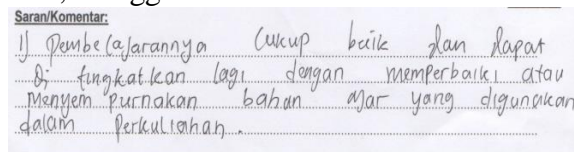 Saran/Komentar:
1) Pembelajarannya cukup baik dan dapat
Di tingkatkan lagi dengan memperbaiki atau
Menyempurnakan bahan ajar yang digunakan
dalam Perkuliahan.